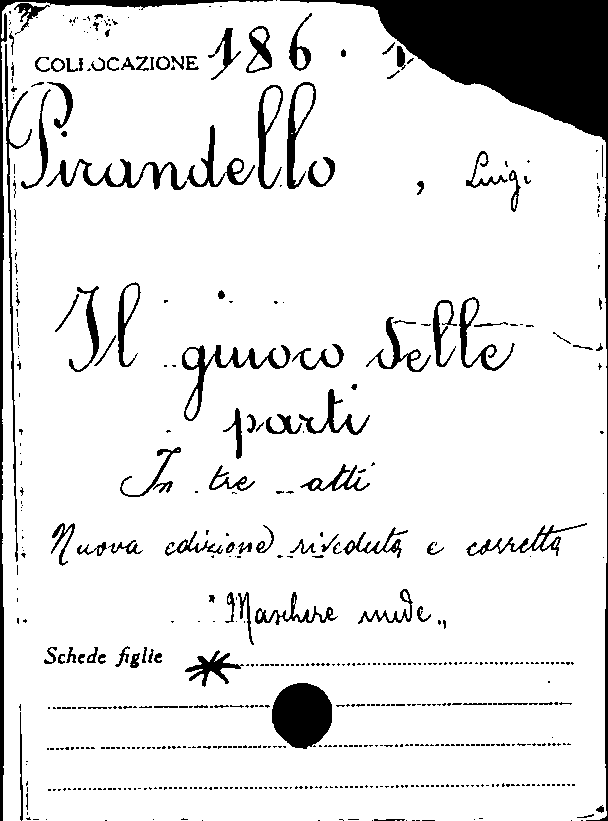 COLLOCAZIONE 186. 1
Pirandello, Luigi
Il giuoco delle
parti
In tre atti
Nuova edizione riveduta e corretta
"Maschere nude„
Schede figlie *